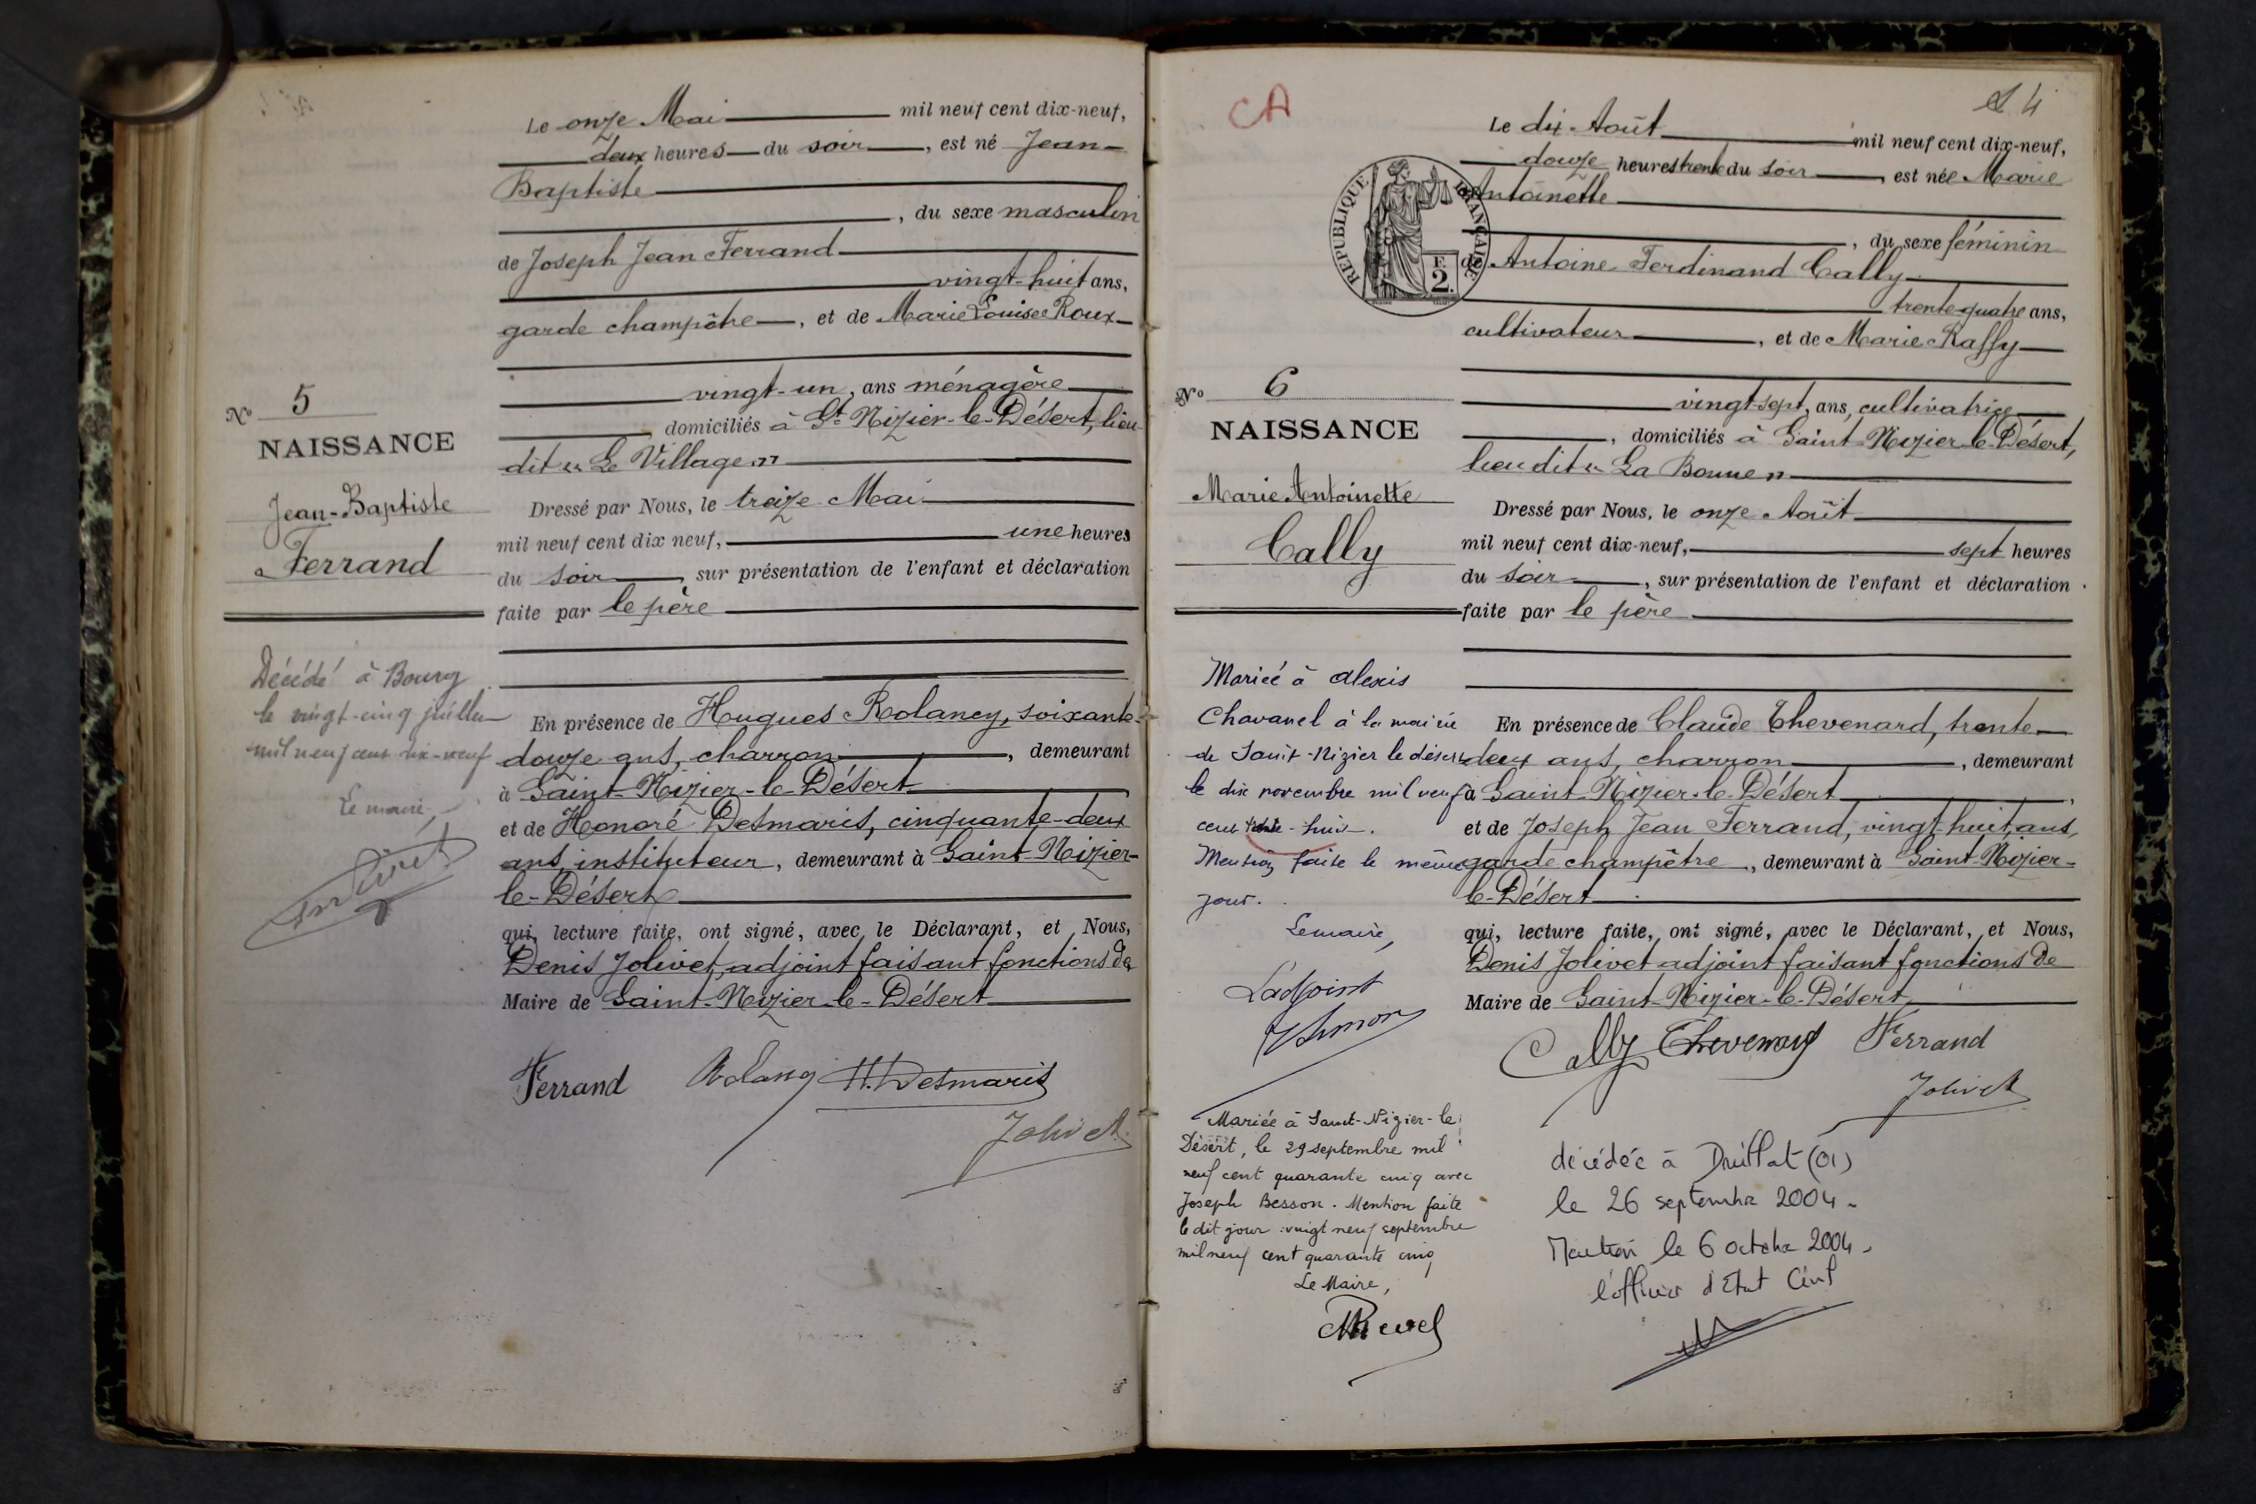 Le onze Mai mil neuf cent dix-neuf,
deux heures du soir, est né Jean-
Baptiste
, du sexe masculin
de Joseph Jean Ferrand
vingt-huit ans,
garde champêtre, et de Marie Louise Roux
vingt-un, ans ménagère
domiciliés à St Nizier-le-Désert, lieu
dit "Le Village"
No 5
NAISSANCE
Jean-Baptiste
Ferrand
Dressé par Nous, le treize Mai
mil neuf cent dix neuf, une heures
du soir, sur présentation de l'enfant et déclaration
faite par le père
Décédé à Bourg
le vingt-cinq juillet
mil neuf cent dix-neuf
Le maire,
En présence de Hugues Rolancy, soixante-
douze ans, charron, demeurant
à Saint-Nizier-le-Désert
et de Honoré Desmaris, cinquante-deux
ans, instituteur, demeurant à Saint-Nizier-
le-Désert
qui, lecture faite, ont signé, avec le Déclarant, et Nous,
Denis Jolivet, adjoint faisant fonctions de
Maire de Saint-Nizier-le-Désert
Ferrand Rolancy H. Desmaris
Jolivet
CA
4
RÉPUBLIQUE FRANÇAISE
F.
2.
Le dix Août mil neuf cent dix-neuf,
douze heures trente du soir, est née Marie
Antoinette
, du sexe féminin
de Antoine Ferdinand Cally
trente-quatre ans,
cultivateur, et de Marie Raffy
vingt-sept, ans, cultivatrice
, domiciliés à Saint-Nizier-le-Désert,
lieu dit "La Bonne"
No 6
NAISSANCE
Marie Antoinette
Cally
Dressé par Nous, le onze Août
mil neuf cent dix-neuf, sept heures
du soir, sur présentation de l'enfant et déclaration
faite par le père
Mariée à Alexis
Chavanel à la mairie
de Saint-Nizier le désert
le dix novembre mil neuf
cent trente-huit.
Mention faite le même
jour.
Le maire,
L'adjoint
En présence de Claude Thevenard, trente-
deux ans, charron, demeurant
à Saint-Nizier-le-Désert,
et de Joseph Jean Ferrand, vingt-huit, ans,
garde champêtre, demeurant à Saint-Nizier-
le-Désert
qui, lecture faite, ont signé, avec le Déclarant, et Nous,
Denis Jolivet adjoint faisant fonctions de
Maire de Saint-Nizier-le-Désert
Cally Thevenard Ferrand
Jolivet
Mariée à Saint-Nizier-le
Désert, le 29 septembre mil
neuf cent quarante cinq avec
Joseph Besson. Mention faite
le dit jour : vingt neuf septembre
mil neuf cent quarante cinq
Le Maire,
décédée à Druillat (01)
le 26 septembre 2004.
Mention le 6 octobre 2004.
l'officier d'Etat Civil